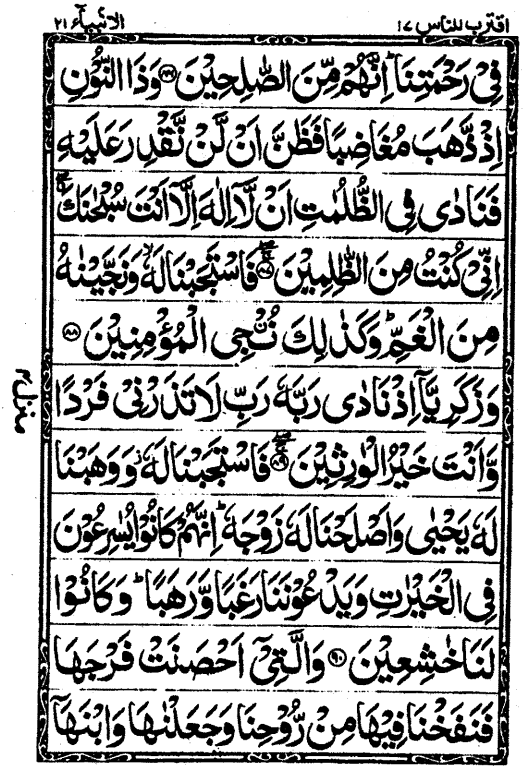 اقترب للناس ١٧ الانبیآء ٢١
فِیْ رَحْمَتِنَا ؕ اِنَّهُمْ مِّنَ الصّٰلِحِیْنَ ۝۸۶ وَذَا النُّوْنِ
اِذْ ذَّهَبَ مُغَاضِبًا فَظَنَّ اَنْ لَّنْ نَّقْدِرَ عَلَیْهِ
فَنَادٰی فِی الظُّلُمٰتِ اَنْ لَّاۤ اِلٰهَ اِلَّاۤ اَنْتَ سُبْحٰنَكَ ۖۗ
اِنِّیْ كُنْتُ مِنَ الظّٰلِمِیْنَ ۝۸۷ فَاسْتَجَبْنَا لَهٗ ۙ وَنَجَّیْنٰهُ
مِنَ الْغَمِّ ؕ وَكَذٰلِكَ نُـْۨجِی الْمُؤْمِنِیْنَ ۝۸۸
وَزَكَرِیَّاۤ اِذْ نَادٰی رَبَّهٗ رَبِّ لَا تَذَرْنِیْ فَرْدًا
وَّاَنْتَ خَیْرُ الْوٰرِثِیْنَ ۝۸۹ فَاسْتَجَبْنَا لَهٗ ؗ وَوَهَبْنَا
لَهٗ یَحْیٰی وَاَصْلَحْنَا لَهٗ زَوْجَهٗ ؕ اِنَّهُمْ كَانُوْا یُسٰرِعُوْنَ
فِی الْخَیْرٰتِ وَیَدْعُوْنَنَا رَغَبًا وَّرَهَبًا ؕ وَكَانُوْا
لَنَا خٰشِعِیْنَ ۝۹۰ وَالَّتِیْۤ اَحْصَنَتْ فَرْجَهَا
فَنَفَخْنَا فِیْهَا مِنْ رُّوْحِنَا وَجَعَلْنٰهَا وَابْنَهَاۤ
منزل ٤